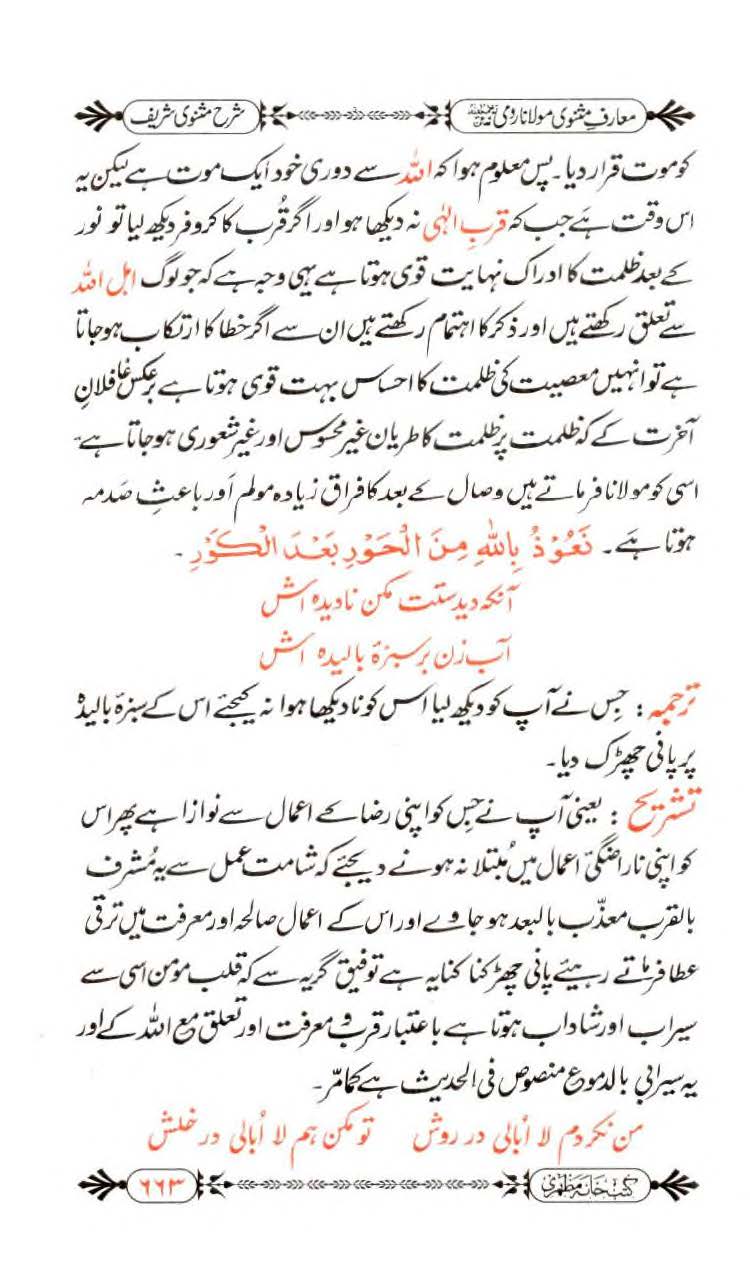 معارفِ مثنوی مولانا رومی شرح مثنوی شریف
کو موت قرار دیا۔ پس معلوم ہوا کہ اللہ سے دوری خود ایک موت ہے لیکن یہ
اس وقت ہے جب کہ قربِ الٰہی نہ دیکھا ہو اور اگر قُرب کا کروفر دیکھ لیا تو نور
کے بعد ظلمت کا ادراک نہایت قوی ہوتا ہے یہی وجہ ہے کہ جو لوگ اہل اللہ
سے تعلق رکھتے ہیں اور ذکر کا اہتمام رکھتے ہیں ان سے اگر خطا کا ارتکاب ہو جاتا
ہے تو انہیں معصیت کی ظلمت کا احساس بہت قوی ہوتا ہے برعکس غافلانِ
آخرت کے کہ ظلمت پر ظلمت کا طریان غیر محسوس اور غیر شعوری ہو جاتا ہے۔
اسی کو مولانا فرماتے ہیں وصال کے بعد کا فراق زیادہ مولم اور باعثِ صَدمہ
ہوتا ہے۔ نَعُوْذُ بِاللّٰهِ مِنَ الْحَوْرِ بَعْدَ الْكَوْرِ۔
آنکہ دیدستت مکن نادیدہ اش
آب زن بر سبزۂ بالیدہ اش
ترجمہ: جِس نے آپ کو دیکھ لیا اس کو نا دیکھا ہوا نہ کیجئے اس کے سبزۂ بالیدہ
پر پانی چھڑک دیا۔
تشریح: یعنی آپ نے جِس کو اپنی رضا کے اعمال سے نوازا ہے پھر اس
کو اپنی ناراضگی اعمال میں مُبتلا نہ ہونے دیجئے کہ شامت عمل سے یہ مُشرف
بالقرب معذّب بالبعد ہو جاوے اور اس کے اعمال صالحہ اور معرفت میں ترقی
عطا فرماتے رہیئے پانی چھڑکنا کنایہ ہے توفیق گریہ سے کہ قلب مؤمن اسی سے
سیراب اور شاداب ہوتا ہے باعتبار قرب و معرفت اور تعلق مع اللہ کے اور
یہ سیرابی بالدموع منصوص فی الحدیث ہے کما مرّ۔
من نکردم لا اُبالی در روش تو مکن ہم لا اُبالی در خلش
کتب خانہ مظہری ٦٦٣